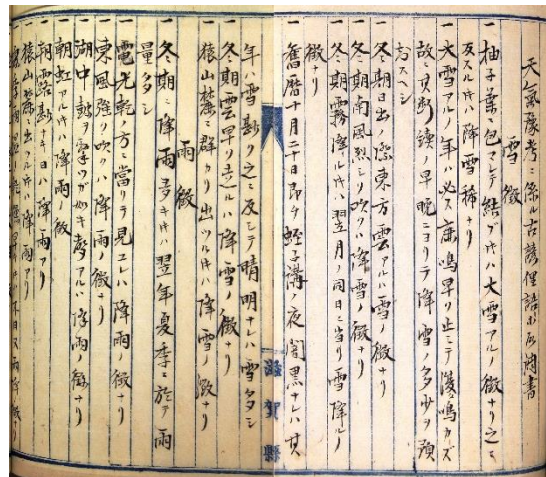 天氣豫考ニ係ル古諺俚語
雪徴
一 柚子葉ニ包マレテ結ブキハ大雪アルノ徴ナリ之ニ
反スルキハ降雪稀ナリ
一 大雪アル年ハ必ス鹿鳴早ク止ミテ後鳴カズ
故ニ其断續ノ早晩ニヨリテ降雪ノ多少ヲ預
占スベシ
一 冬期日出ノ際東方雲アルキハ大雪ノ徴ナリ
一 冬期南風烈シク吹クハ降雪ノ徴ナリ
一 冬期霧降ルキハ翌月ノ同日ニ當リ雪降ルノ
徴ナリ
一 舊暦十月二十日即チ蛭子講ノ夜闇黒ナレハ其
滋賀縣
年ハ雪尠ク之ニ反シテ晴明ナレハ雪多シ
一 冬期雲早ク走ルハ降雪ノ徴ナリ
一 猿山麓ニ群カリ出ツルキハ降雪ノ徴ナリ
雨徴
一 冬期ニ降雨多キキハ翌年夏季ニ於テ雨
量多シ
一 電光乾ノ方ニ當リテ見ユレハ降雨ノ徴ナリ
一 東風強ク吹クハ降雨ノ徴ナリ
一 湖中鼓ヲ撃ツガ如キ聲アルハ降雨ノ徴ナリ
一 朝虹アルキハ降雨ノ徴
一 朝露尠ナキ日ハ降雨アリ
一 猿山麓ニ出ツルキハ降雨アリ